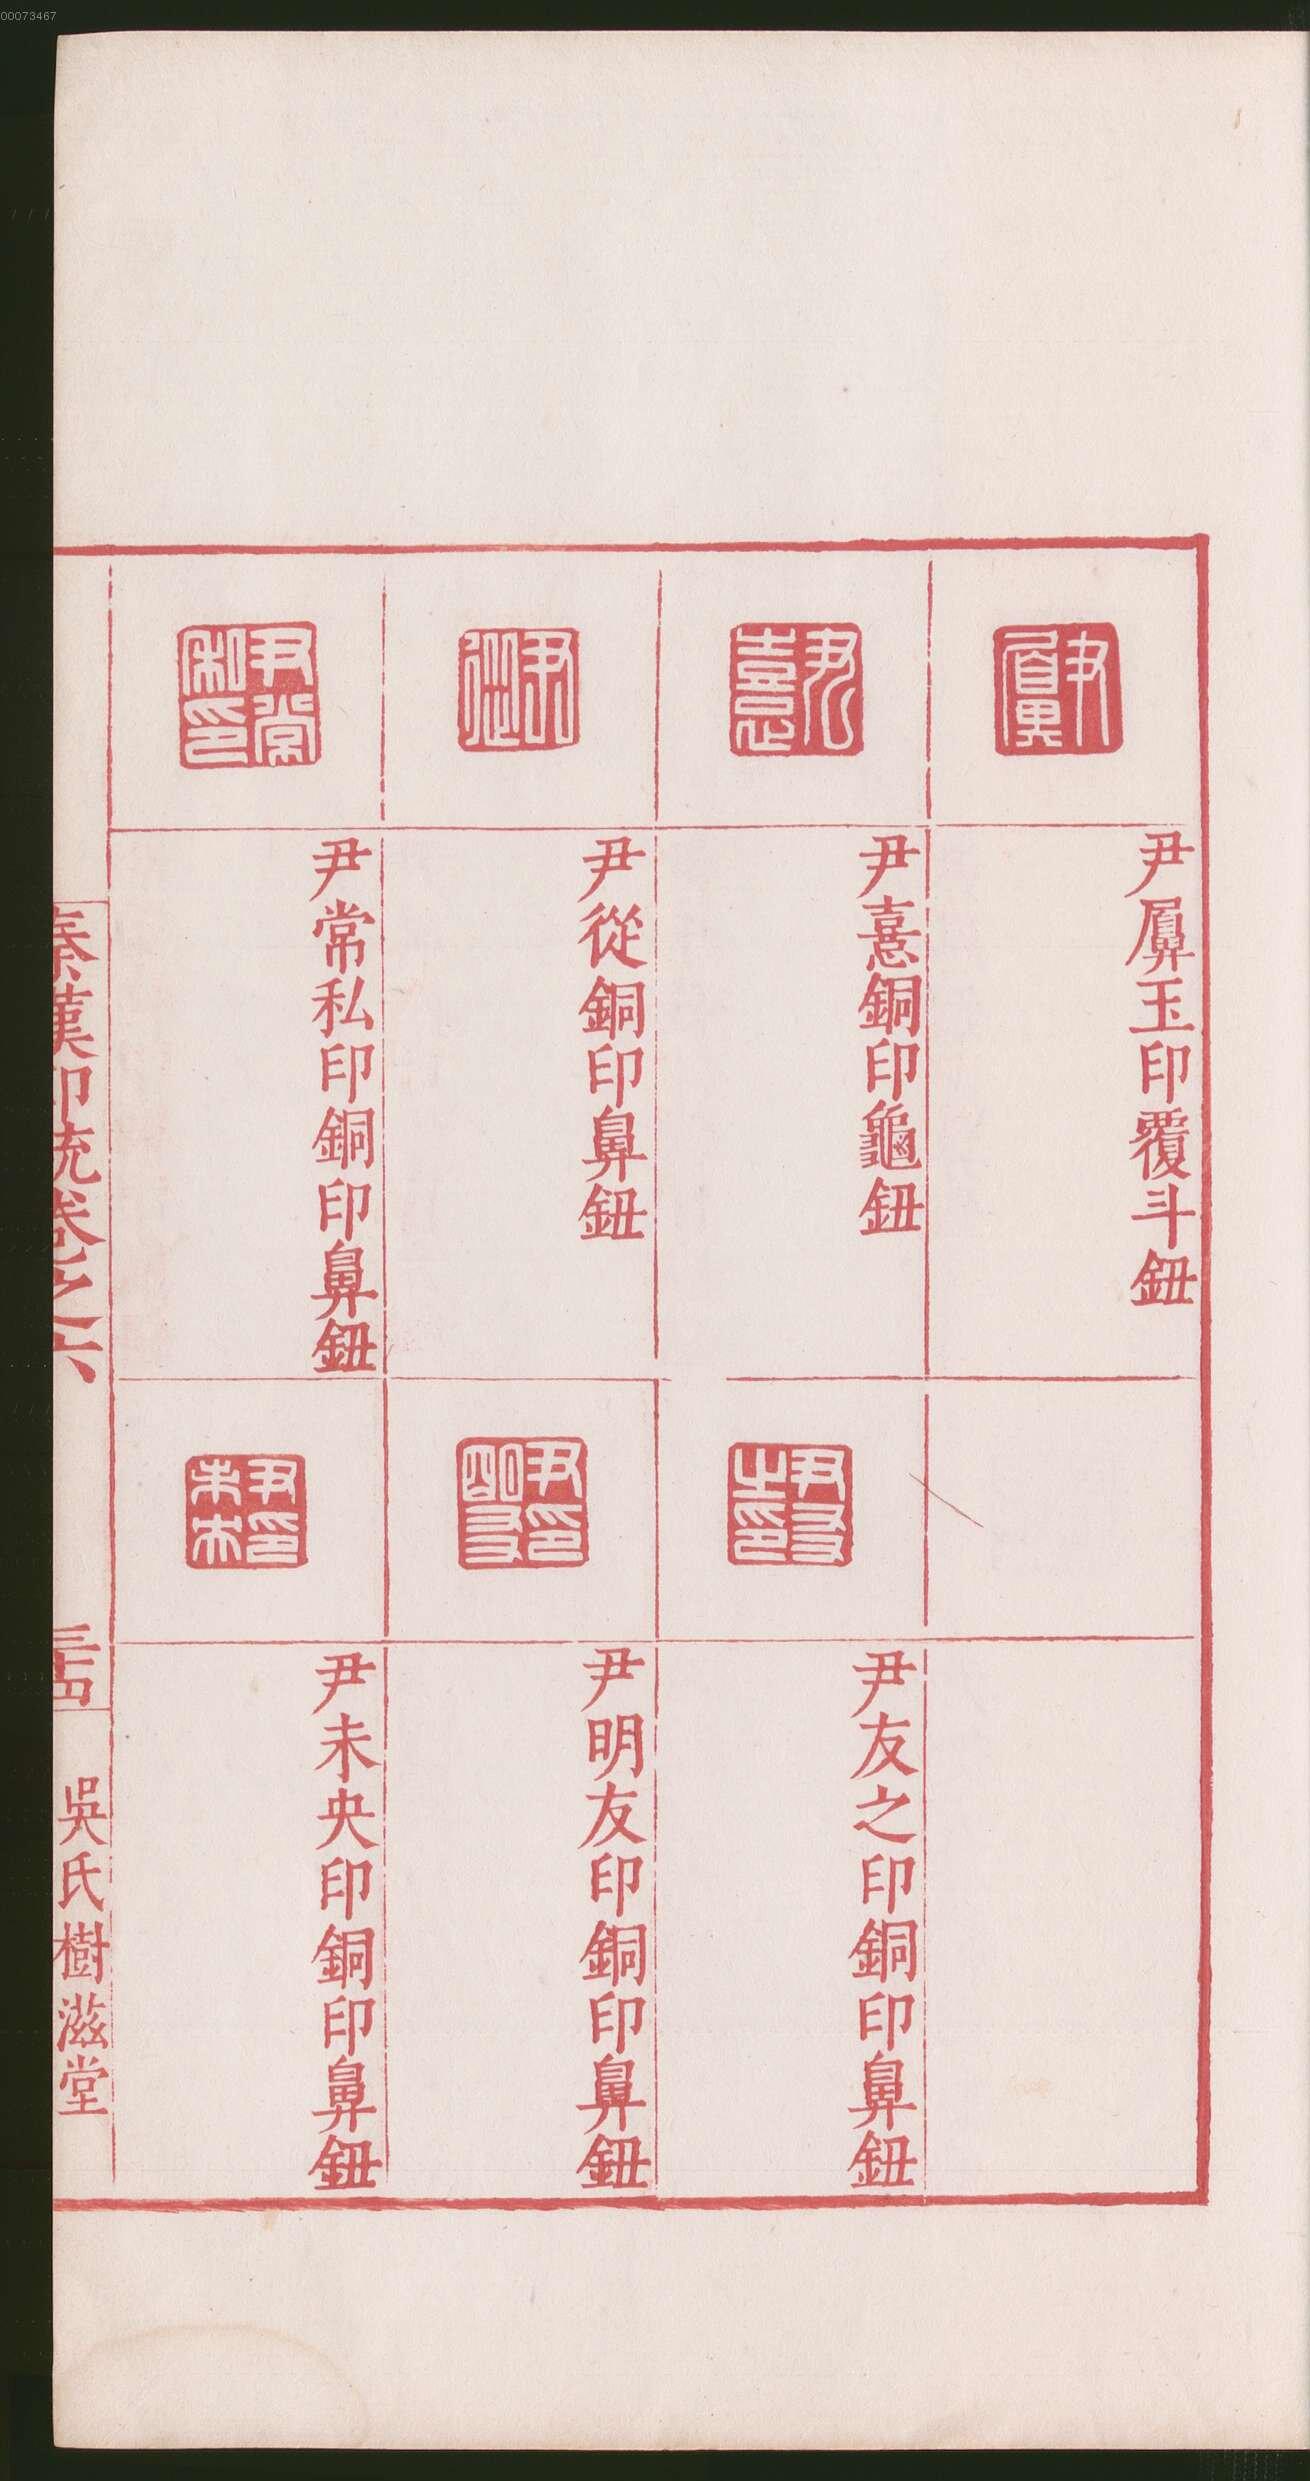 00073467
尹屭玉印覆斗鈕
尹憙銅印龜鈕
尹友之印銅印鼻鈕
尹從銅印鼻鈕
尹明友印銅印鼻鈕
尹常私印銅印鼻鈕
尹未央印銅印鼻鈕
秦漢印統卷之六
吳氏樹滋堂